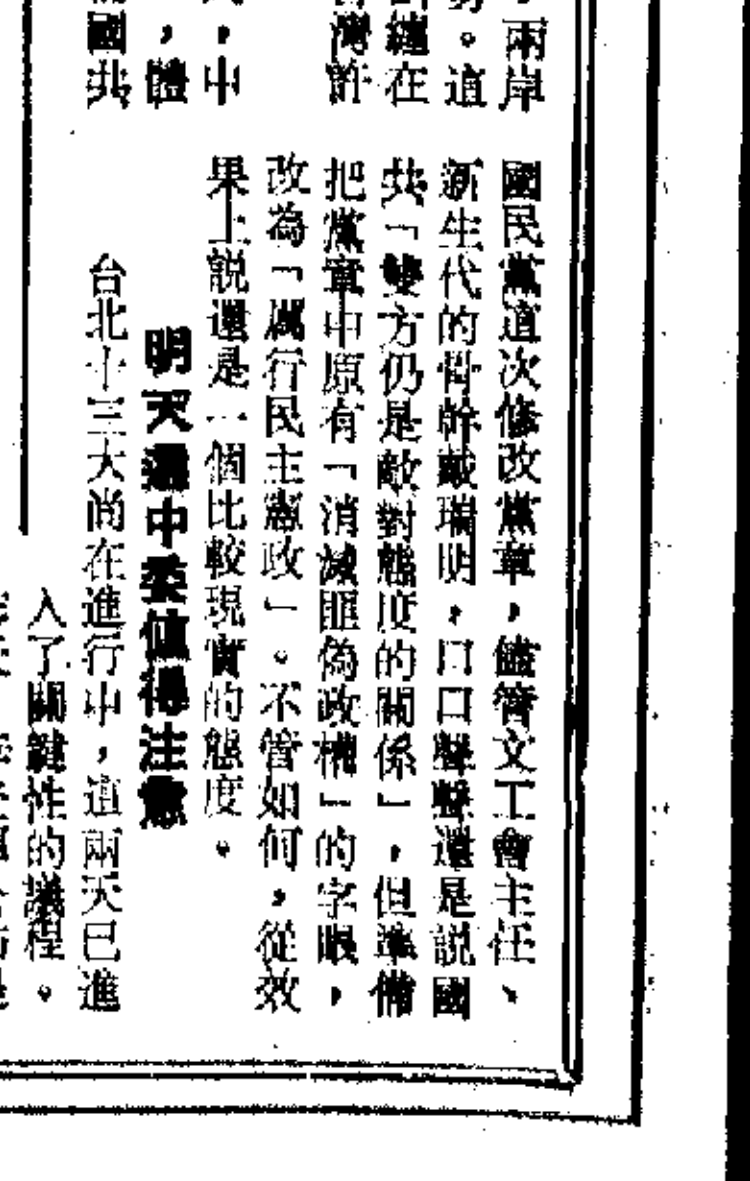 兩岸
。這
纏在
灣許
，中
，體
國共
國民黨這次修改黨章，儘管文工會主任、
新生代的骨幹戴瑞明，口口聲聲還是説國
共「雙方仍是敵對態度的關係」，但準備
把黨章中原有「消滅匪偽政權」的字眼，
改為「厲行民主憲政」。不管如何，從效
果上説還是一個比較現實的態度。
明天選中委值得注意
台北十三大尚在進行中，這兩天已進
入了關鍵性的議程。